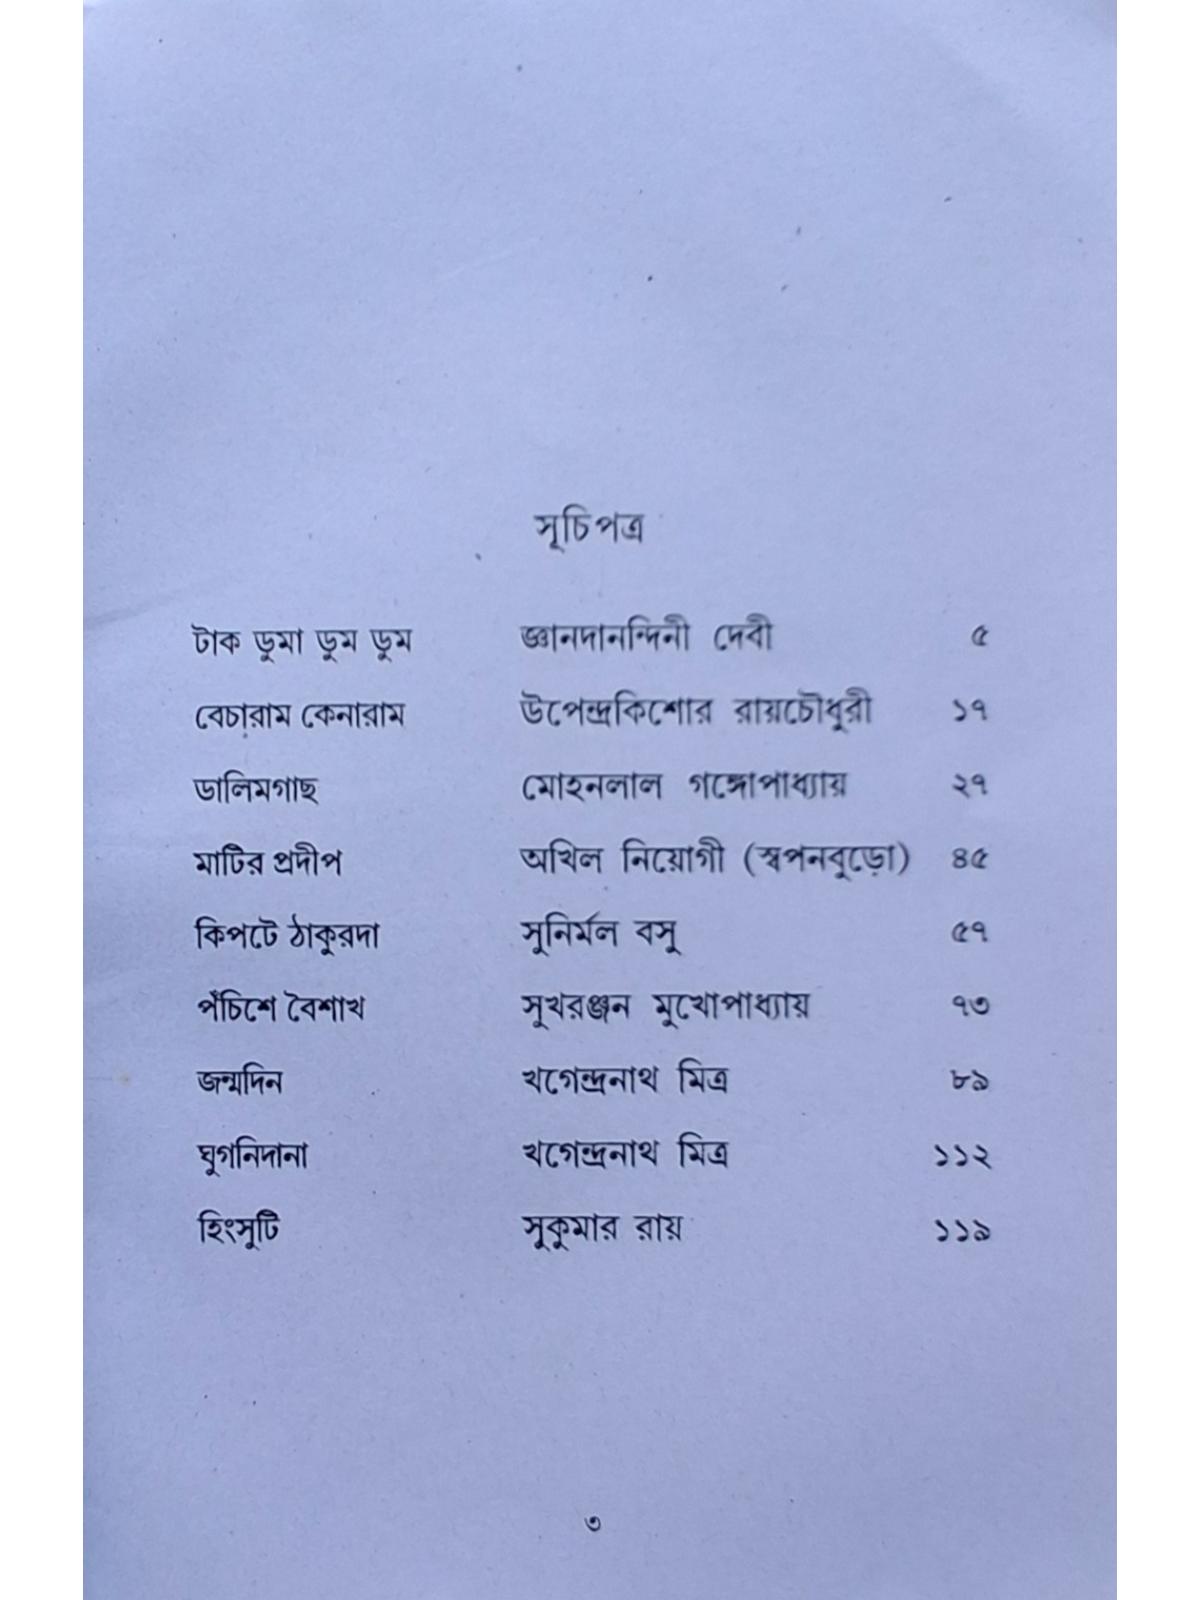 সূচিপত্র
টাক ডুমা ডুম ডুম জ্ঞানদানন্দিনী দেবী ৫
বেচারাম কেনারাম উপেন্দ্রকিশোর রায়চৌধুরী ১৭
ডালিমগাছ মোহনলাল গঙ্গোপাধ্যায় ২৭
মাটির প্রদীপ অখিল নিয়োগী (স্বপনবুড়ো) ৪৫
কিপটে ঠাকুরদা সুনির্মল বসু ৫৭
পঁচিশে বৈশাখ সুখরঞ্জন মুখোপাধ্যায় ৭৩
জন্মদিন খগেন্দ্রনাথ মিত্র ৮৯
ঘুগনিদানা খগেন্দ্রনাথ মিত্র ১১২
হিংসুটি সুকুমার রায় ১১৯
৩